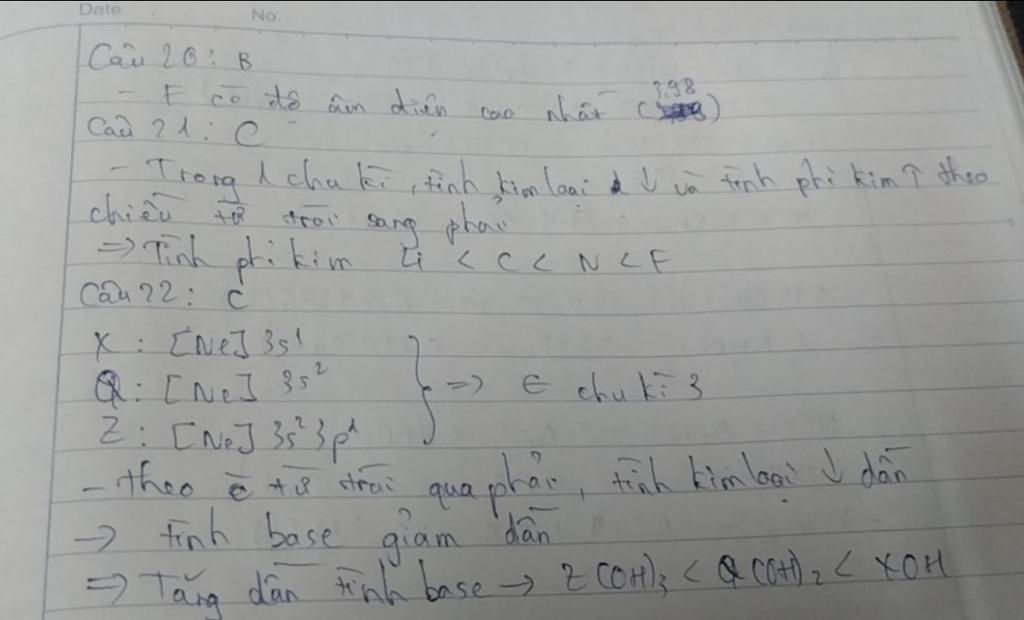 Date No.
Câu 20: B
- F có độ âm điện cao nhất (3.98)
Câu 21: C
- Trong 1 chu kì, tính kim loại ↓ và tính phi kim ↑ theo
chiều từ trái sang phải
=> Tính phi kim Li < C < N < F
Câu 22: C
X: [Ne] 3s¹
Q: [Ne] 3s² } => ∈ chu kì 3
Z: [Ne] 3s²3p¹
- theo từ trái qua phải, tính kim loại ↓ dần
-> tính base giảm dần
=> Tăng dần tính base -> Z(OH)₃ < Q(OH)₂ < XOH